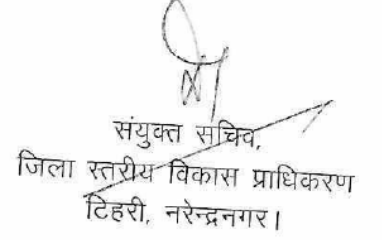 संयुक्त सचिव,
जिला स्तरीय विकास प्राधिकरण
टिहरी, नरेन्द्रनगर।